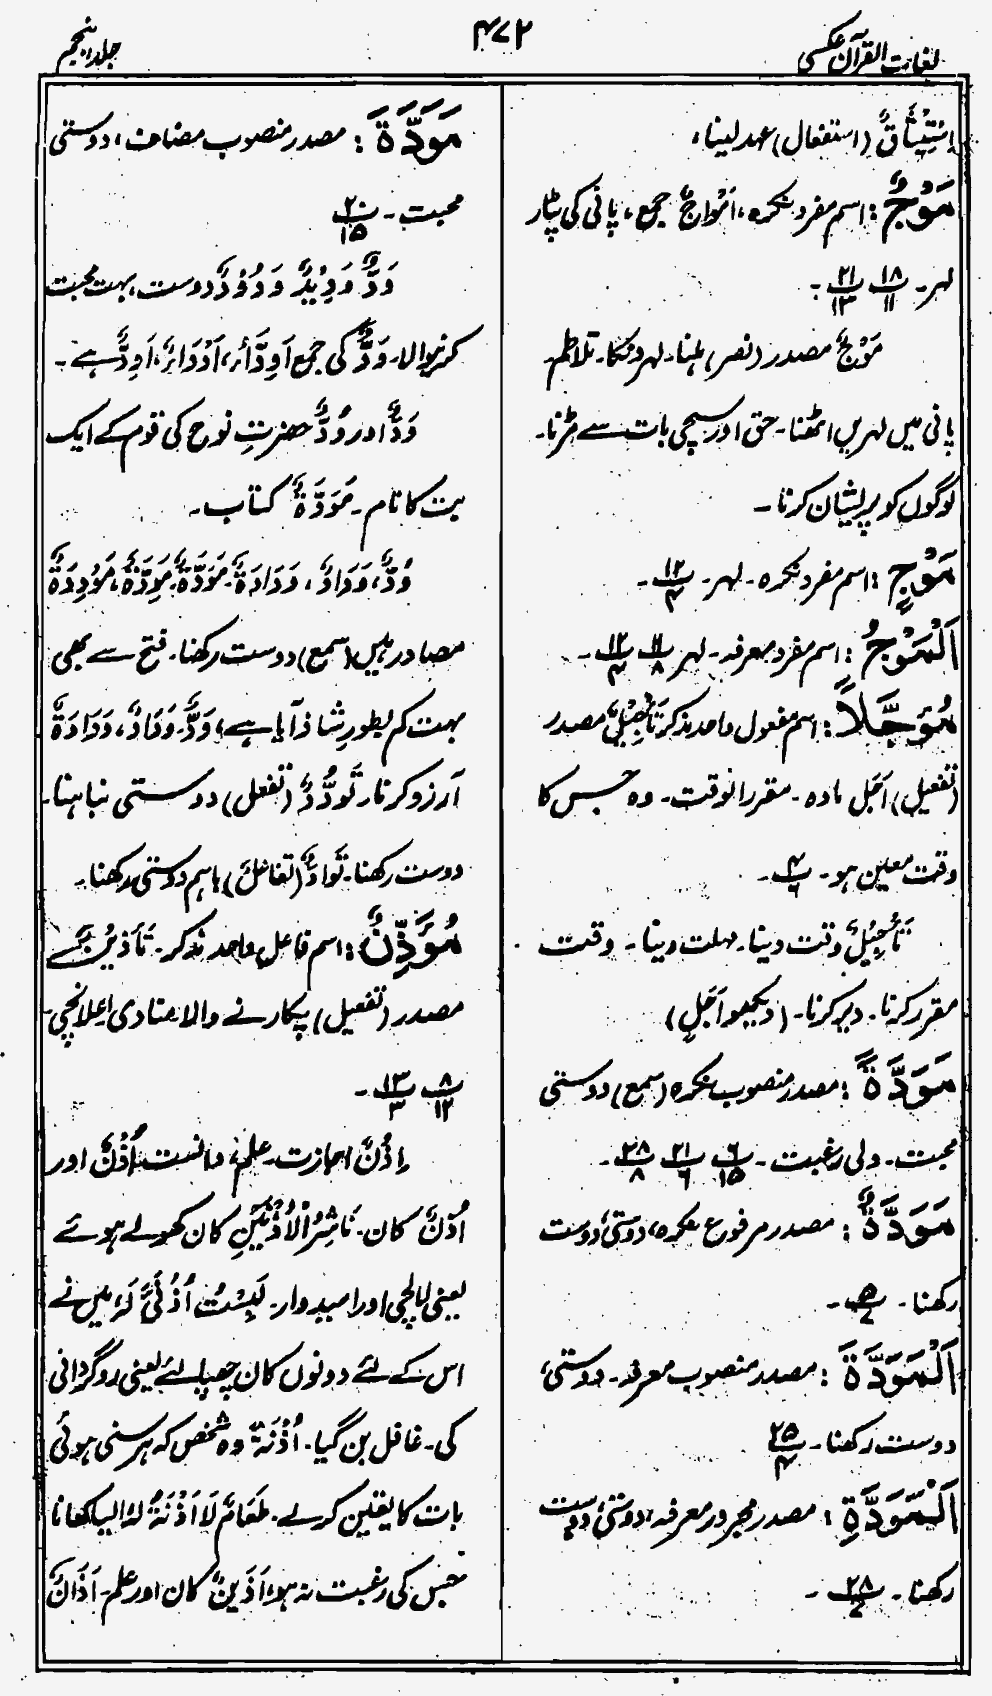 لغات القرآن عکسی
۴۷۲
جلد پنجم
اِسْتِیْثَاقٌ (استفعال) عہد لینا،
مَوْجٌ : اسم مفرد نکرہ، اَمْوَاجٌ جمع، پانی کی پٹار
لہر۔ ۱۸/۱۱ ۲۱/۱۳ ۔
مَوْجٌ مصدر (نصر) ہلنا۔ لہر و تلاطم
پانی میں لہریں اٹھنا۔ حق اور سچی بات سے مڑنا۔
لوگوں کو پریشان کرنا ۔
مَوْجٍ : اسم مفرد نکرہ ۔ لہر ۔ ۱۲/۴ ۔
اَلْمَوْجُ : اسم مفرد معرفہ ۔ لہر ۱۱/۸ ۱۲/۴ ۔
مُؤَجَّلًا : اسم مفعول واحد مذکر تَاْجِیْلٌ مصدر
(تفعیل) اَجَلٌ مادہ ۔ مقرر الوقت ۔ وہ جس کا
وقت معین ہو ۔ ۴/۶ ۔
تَاْجِیْلٌ وقت دینا۔ مہلت دینا ۔ وقت
مقرر کرنا ۔ دیر کرنا ۔ (دیکھو اَجَلٍ)
مَوَدَّةً : مصدر منصوب نکرہ (سمع) دوستی
محبت ۔ دلی رغبت ۔ ۶/۱۵ ۲۱/۶ ۲۸/۸ ۔
مَوَدَّةٌ : مصدر مرفوع نکرہ، دوستی، دوست
رکھنا ۔ ۵/۷ ۔
اَلْمَوَدَّةَ : مصدر منصوب معرفہ ۔ دوستی،
دوست رکھنا ۔ ۲۵/۴
اَلْمَوَدَّةِ : مصدر مجرور معرفہ، دوستی، دوست
رکھنا ۔ ۲۸/۷ ۔
مَوَدَّةَ : مصدر منصوب مضاف، دوستی
محبت ۔ ۲۰/۱۵
وَدٌّ وَدِیْدٌ وَدُوْدٌ دوست، بہت محبت
کرنیوالا ۔ وَدٌّ کی جمع اَوِدَّاءُ، اَوْدَاءٌ، اَوِدٌّ ہے ۔
وَدٌّ اور وُدٌّ حضرتِ نوح کی قوم کے ایک
بت کا نام ۔ مَوَدَّةٌ کتاب ۔
وُدٌّ، وَدَادٌ، وَدَادَةٌ ۔ مَوَدَّةٌ، مَوِدَّةٌ، مَوْدِدَةٌ
مصادر ہیں (سمع) دوست رکھنا ۔ فتح سے بھی
بہت کم بطورِ شاذ آیا ہے، وَدٌّ ۔ وَدَادٌ، وَدَادَةٌ
آرزو کرنا۔ تَوَدُّدٌ (تفعل) دوستی نباہنا۔
دوست رکھنا۔ تَوَادٌّ (تفاعل) باہم دوستی رکھنا۔
مُؤَذِّنٌ : اسم فاعل واحد مذکر ۔ تَاْذِیْنٌ
مصدر (تفعیل) پکارنے والا منادی اعلانچی
۸/۱۲ ۱۳/۳ ۔
اِذْنٌ اجازت ۔ علم، دانست اُذْنٌ اور
اُذُنٌ کان ۔ نَاشِرُ الْاُذُنَیْنِ کان کھولے ہوئے
یعنی لالچی اور امیدوار ۔ لَبِسْتُ اُذُنَیَّ لَهٗ میں نے
اس کے لئے دونوں کان چھپا لئے یعنی روگردانی
کی ۔ غافل بن گیا ۔ اُذُنَةٌ وہ شخص کہ ہر سنی ہوئی
بات کا یقین کر لے ۔ طَعَامٌ لَا اَذَنَةَ لَهٗ ایسا کھانا
جس کی رغبت نہ ہو، اَذِیْنٌ کان اور علم۔ اَذَانٌ